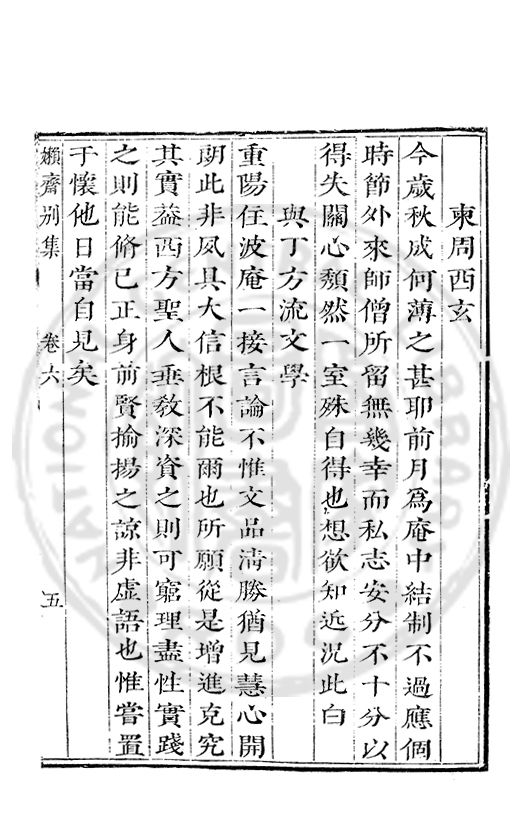 柬周西玄
今歲秋成何薄之甚耶前月爲庵中結制不過應個
時節外來師僧所留無幾幸而私志安分不十分以
得失關心頹然一室殊自得也想欲知近況此白
與丁方流文學
重陽住波庵一接言論不惟文品淸勝猶見慧心開
朗此非夙具大信根不能爾也所願從是增進克究
其實葢西方聖人垂敎深資之則可窮理盡性實踐
之則能脩已正身前賢揄揚之諒非虛語也惟嘗置
于懷他日當自見矣
嬾齋別集
卷六
五
NATIONAL CENTRAL LIBRARY